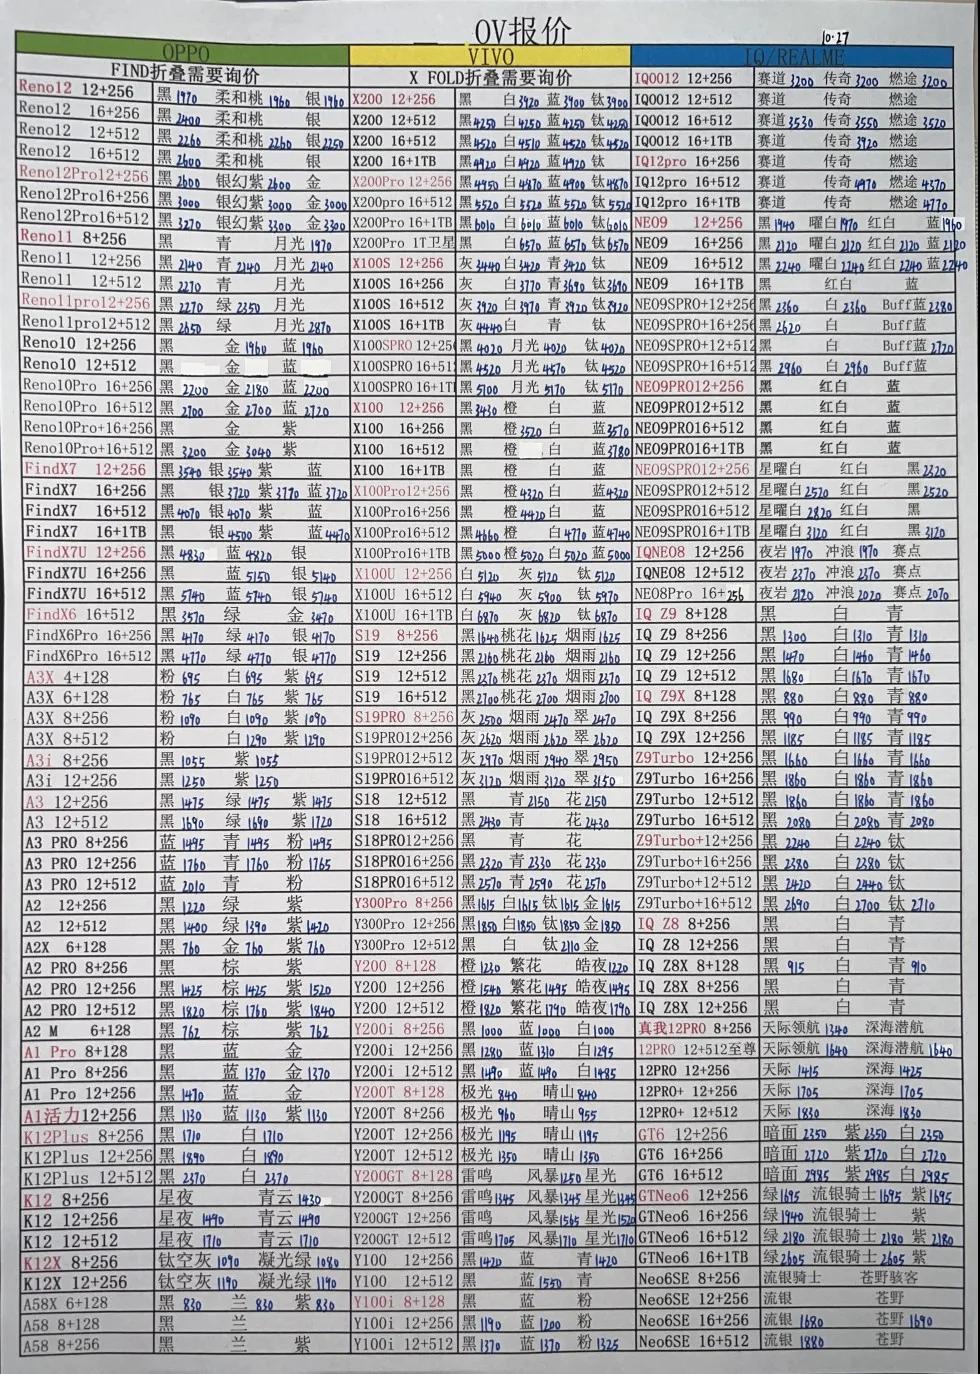 OV报价
10.27
OPPO
FIND折叠需要询价
Reno12 12+256 黑1970 柔和桃1960 银1960
Reno12 16+256 黑2400 柔和桃 银
Reno12 12+512 黑2260 柔和桃2260 银2250
Reno12 16+512 黑2600 柔和桃 银
Reno12Pro12+256 黑2600 银幻紫2600 金
Reno12Pro16+256 黑3000 银幻紫3000 金3000
Reno12Pro16+512 黑3270 银幻紫3300 金3300
Reno11 8+256 黑 青 月光1970
Reno11 12+256 黑2140 青2140 月光2140
Reno11 12+512 黑2270 青 月光
Reno11pro12+256 黑2270 绿2350 月光
Reno11pro12+512 黑2650 绿 月光2870
Reno10 12+256 黑 金1960 蓝1960
Reno10 12+512 黑 金 蓝
Reno10Pro 16+256 黑2200 金2180 蓝2200
Reno10Pro 16+512 黑2700 金2700 蓝2720
Reno10Pro+16+256 黑 金 紫
Reno10Pro+16+512 黑3200 金3040 紫
FindX7 12+256 黑3540 银3540 紫 蓝
FindX7 16+256 黑 银3720 紫3770 蓝3720
FindX7 16+512 黑4070 银4070 紫 蓝
FindX7 16+1TB 黑 银4500 紫 蓝4470
FindX7U 12+256 黑4830 蓝4820 银
FindX7U 16+256 黑 蓝5150 银5140
FindX7U 16+512 黑5740 蓝5740 银5740
FindX6 16+512 黑3570 绿 金3470
FindX6Pro 16+256 黑4170 绿4170 银4170
FindX6Pro 16+512 黑4770 绿4770 银4770
A3X 4+128 粉695 白695 紫695
A3X 6+128 粉765 白765 紫765
A3X 8+256 粉1090 白1090 紫1090
A3X 8+512 粉 白1290 紫1290
A3i 8+256 黑1055 紫1055
A3i 12+256 黑1250 紫1250
A3 12+256 黑1475 绿1475 紫1475
A3 12+512 黑1690 绿1690 紫1720
A3 PRO 8+256 蓝1495 青1495 粉1495
A3 PRO 12+256 蓝1760 青1760 粉1765
A3 PRO 12+512 蓝2010 青 粉
A2 12+256 黑1220 绿 紫
A2 12+512 黑1400 绿1390 紫1420
A2X 6+128 黑760 金760 紫760
A2 PRO 8+256 黑 棕 紫
A2 PRO 12+256 黑1425 棕1425 紫1520
A2 PRO 12+512 黑1820 棕1760 紫1840
A2 M 6+128 黑762 棕 紫762
A1 Pro 8+128 黑 蓝 金
A1 Pro 8+256 黑 蓝1370 金1370
A1 Pro 12+256 黑1470 蓝 金
A1活力12+256 黑1130 蓝1130 紫1130
K12Plus 8+256 黑1710 白1710
K12Plus 12+256 黑1890 白1890
K12Plus 12+512 黑2370 白2370
K12 8+256 星夜 青云1430
K12 12+256 星夜1490 青云1490
K12 12+512 星夜1710 青云1710
K12X 8+256 钛空灰1090 凝光绿1080
K12X 12+256 钛空灰1190 凝光绿1190
A58X 6+128 黑830 兰830 紫830
A58 8+128 黑 兰
A58 8+256 黑 兰 紫
VIVO
X FOLD折叠需要询价
X200 12+256 黑 白3920 蓝3900 钛3900
X200 12+512 黑4250 白4250 蓝4250 钛4250
X200 16+512 黑4520 白4510 蓝4520 钛4520
X200 16+1TB 黑4920 白4920 蓝4920 钛
X200Pro 12+256 黑4950 白4870 蓝4900 钛4870
X200pro 16+512 黑5520 白5520 蓝5520 钛5520
X200Pro 16+1TB 黑6010 白6010 蓝6010 钛6010
X200Pro 1T卫星 黑 白6570 蓝6570 钛6570
X100S 12+256 灰3440 白3420 青3420 钛
X100S 16+256 灰 白3770 青3690 钛3690
X100S 16+512 灰3920 白3970 青3920 钛3920
X100S 16+1TB 灰4440 白 青 钛
X100SPRO 12+256 黑4020 月光4020 钛4020
X100SPRO 16+512 黑4520 月光4570 钛4520
X100SPRO 16+1T 黑5100 月光5170 钛5170
X100 12+256 黑3430 橙 白 蓝
X100 16+256 黑 橙3520 白 蓝3570
X100 16+512 黑 橙 白 蓝3780
X100 16+1TB 黑 橙 白 蓝
X100Pro12+256 黑 橙4320 白 蓝4320
X100Pro16+256 黑 橙4420 白 蓝
X100Pro16+512 黑4660 橙 白4770 蓝4740
X100Pro16+1TB 黑5000 橙5020 白5020 蓝5000
X100U 12+256 白5120 灰5120 钛5120
X100U 16+512 白5940 灰5900 钛5970
X100U 16+1TB 白6870 灰6820 钛6870
S19 8+256 黑1640 桃花1625 烟雨1625
S19 12+256 黑2160 桃花2160 烟雨2160
S19 12+512 黑2370 桃花2370 烟雨2370
S19 16+512 黑2700 桃花2700 烟雨2700
S19PRO 8+256 灰2500 烟雨2470 翠2470
S19PRO12+256 灰2620 烟雨2620 翠2620
S19PRO12+512 灰2970 烟雨2940 翠2950
S19PRO16+512 灰3120 烟雨3120 翠3150
S18 12+512 黑 青2150 花2150
S18 16+512 黑2430 青 花2430
S18PRO12+256 黑 青 花
S18PRO16+256 黑2320 青2330 花2330
S18PRO16+512 黑2570 青2590 花2570
Y300Pro 8+256 黑1615 白1615 钛1615 金1615
Y300Pro 12+256 黑1850 白1850 钛1850 金1850
Y300Pro 12+512 黑 白 钛2110 金
Y200 8+128 橙1230 繁花 皓夜1220
Y200 12+256 橙1540 繁花1495 皓夜1495
Y200 12+512 橙1820 繁花1790 皓夜1790
Y200i 8+256 黑1000 蓝1000 白1000
Y200i 12+256 黑1280 蓝1310 白1295
Y200i 12+512 黑1490 蓝1490 白1485
Y200T 8+128 极光840 晴山840
Y200T 8+256 极光960 晴山955
Y200T 12+256 极光1195 晴山1195
Y200T 12+512 极光1350 晴山1350
Y200GT 8+128 雷鸣 风暴1250 星光
Y200GT 8+256 雷鸣1345 风暴1345 星光1345
Y200GT 12+256 雷鸣 风暴1565 星光1520
Y200GT 12+512 雷鸣1705 风暴1710 星光1710
Y100 12+256 黑1420 蓝 青1420
Y100 12+512 黑 蓝1550 青
Y100i 8+128 黑 蓝 粉
Y100i 12+256 黑1190 蓝1200 粉
Y100i 12+512 黑1370 蓝1370 粉1325
IQ/REALME
IQOO12 12+256 赛道3200 传奇3200 燃途3200
IQOO12 12+512 赛道 传奇 燃途
IQOO12 16+512 赛道3530 传奇3550 燃途3520
IQOO12 16+1TB 赛道 传奇3920 燃途
IQ12pro 16+256 赛道 传奇 燃途
IQ12pro 16+512 赛道 传奇4970 燃途4370
IQ12pro 16+1TB 赛道 传奇 燃途4770
NEO9 12+256 黑1940 曜白1970 红白 蓝1960
NEO9 16+256 黑2120 曜白2120 红白2120 蓝2120
NEO9 16+512 黑2240 曜白2240 红白2240 蓝2240
NEO9 16+1TB 黑 红白 蓝
NEO9SPRO+12+256 黑2360 白2360 Buff蓝2380
NEO9SPRO+16+256 黑2620 白 Buff蓝
NEO9SPRO+12+512 黑 白 Buff蓝2720
NEO9SPRO+16+512 黑2960 白2960 Buff蓝
NEO9PRO12+256 黑 红白 蓝
NEO9PRO12+512 黑 红白 蓝
NEO9PRO16+512 黑 红白 蓝
NEO9PRO16+1TB 黑 红白 蓝
NEO9SPRO12+256 星曜白 红白 黑2320
NEO9SPRO12+512 星曜白2520 红白 黑2520
NEO9SPRO16+512 星曜白2820 红白 黑
NEO9SPRO16+1TB 星曜白3120 红白 黑3120
IQNEO8 12+256 夜岩1970 冲浪1970 赛点
IQNEO8 12+512 夜岩2370 冲浪2370 赛点
NEO8Pro 16+256 夜岩2120 冲浪2020 赛点2070
IQ Z9 8+128 黑 白 青
IQ Z9 8+256 黑1300 白1310 青1310
IQ Z9 12+256 黑1470 白1460 青1460
IQ Z9 12+512 黑1680 白1670 青1670
IQ Z9X 8+128 黑880 白880 青880
IQ Z9X 8+256 黑990 白990 青990
IQ Z9X 12+256 黑1185 白1185 青1185
Z9Turbo 12+256 黑1660 白1660 青1660
Z9Turbo 16+256 黑1860 白1860 青1860
Z9Turbo 12+512 黑1860 白1860 青1860
Z9Turbo 16+512 黑2080 白2080 青2080
Z9Turbo+12+256 黑2240 白2240 钛
Z9Turbo+16+256 黑2380 白2380 钛
Z9Turbo+12+512 黑2420 白2440 钛
Z9Turbo+16+512 黑2690 白2700 钛2710
IQ Z8 8+256 黑 白 青
IQ Z8 12+256 黑 白 青
IQ Z8X 8+128 黑915 白 青910
IQ Z8X 8+256 黑 白 青
IQ Z8X 12+256 黑 白 青
真我12PRO 8+256 天际领航1340 深海潜航
12PRO 12+512至尊 天际领航1640 深海潜航1640
12PRO 12+256 天际1415 深海1425
12PRO+ 12+256 天际1705 深海1705
12PRO+ 12+512 天际1830 深海1830
GT6 12+256 暗面2350 紫2350 白2350
GT6 16+256 暗面2720 紫2720 白2720
GT6 16+512 暗面2985 紫2985 白2985
GTNeo6 12+256 绿1695 流银骑士1695 紫1695
GTNeo6 16+256 绿1940 流银骑士 紫
GTNeo6 16+512 绿2180 流银骑士2180 紫2180
GTNeo6 16+1TB 绿2605 流银骑士2605 紫
Neo6SE 8+256 流银骑士 苍野骇客
Neo6SE 12+256 流银 苍野
Neo6SE 16+256 流银1680 苍野1690
Neo6SE 16+512 流银1880 苍野